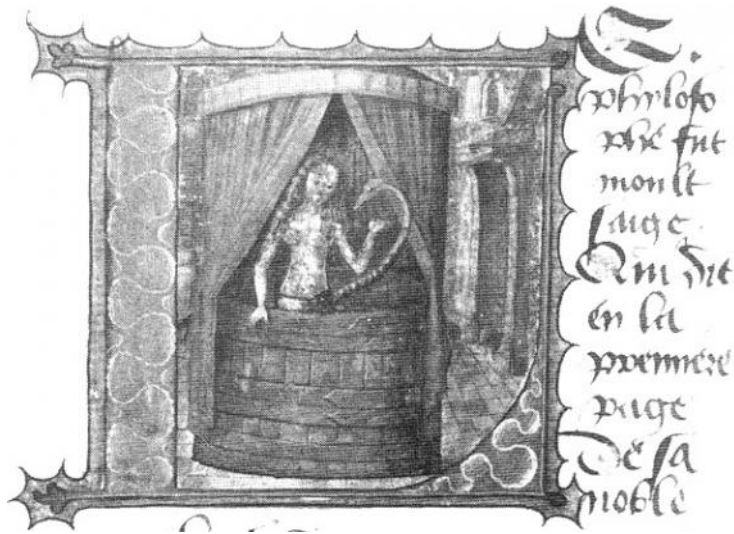 phyloso
phe fut
moult
saige
Qui dit
en la
premiere
page
De sa
noble